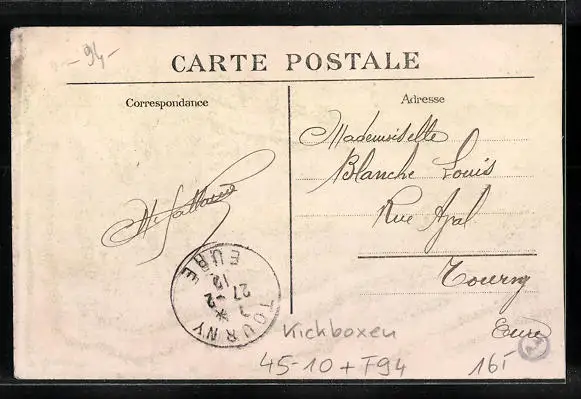 -94-
CARTE POSTALE
Correspondance
Adresse
Mademoiselle
Blanche Louis
Rue
Tourny
Eure
TOURNY
EURE
27-2
12
Kickboxen
45-10+T94
16